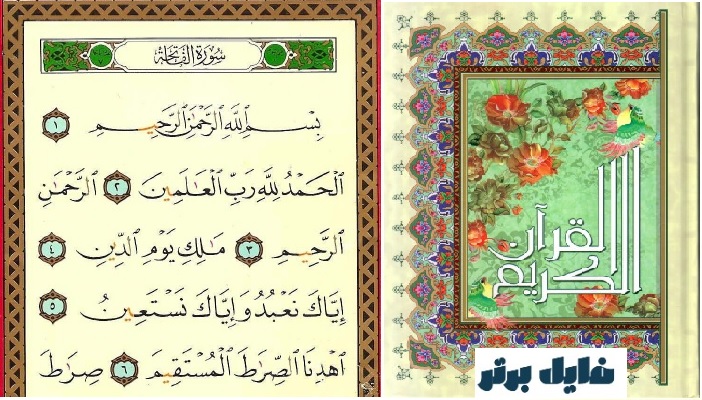 سُورَةُ الفَاتِحَةِ
بِسْمِ ٱللَّهِ ٱلرَّحْمَٰنِ ٱلرَّحِيمِ ١
ٱلْحَمْدُ لِلَّهِ رَبِّ ٱلْعَٰلَمِينَ ٢ ٱلرَّحْمَٰنِ
ٱلرَّحِيمِ ٣ مَٰلِكِ يَوْمِ ٱلدِّينِ ٤
إِيَّاكَ نَعْبُدُ وَإِيَّاكَ نَسْتَعِينُ ٥
ٱهْدِنَا ٱلصِّرَٰطَ ٱلْمُسْتَقِيمَ ٦ صِرَٰطَ
القرآن
الكريم
فایل برتر